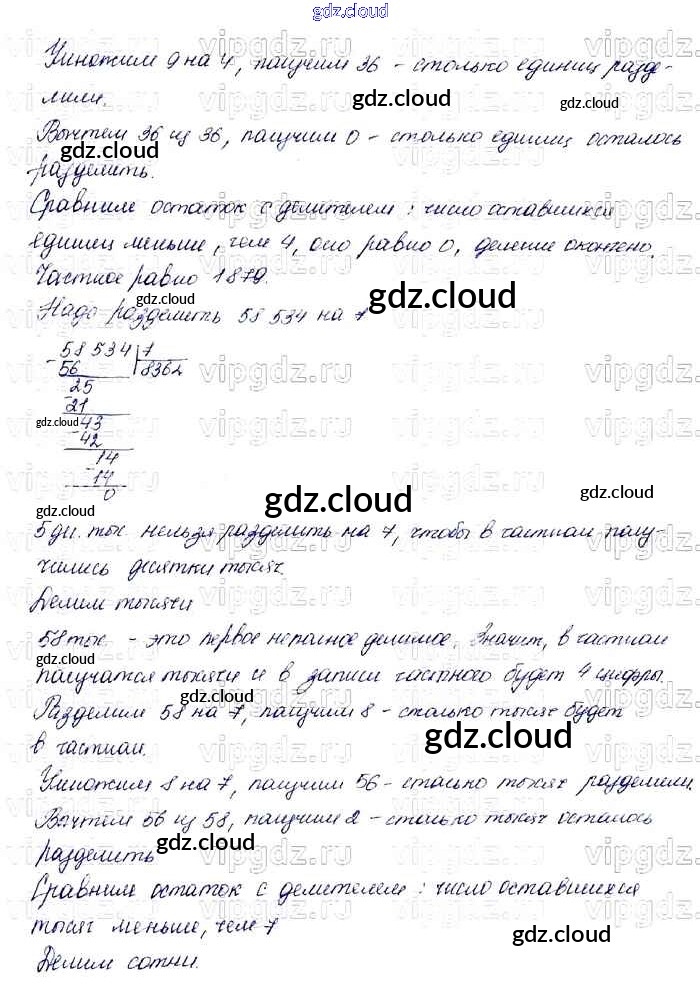 gdz.cloud
Умножим 9 на 4, получим 36 - столько единиц разде-
лили.
gdz.cloud
gdz.cloud
Вычтем 36 из 36, получим 0 - столько единиц осталось
gdz.cloud
разделить.
Сравним остаток с делителем: число оставшихся
единиц меньше, чем 4, оно равно 0, деление окончено.
Частное равно 1879.
gdz.cloud
gdz.cloud
Надо разделить 58 534 на 7
- 58 534 | 7
56 8362
- 25
21
gdz.cloud
- 43
42
- 14
14
0
gdz.cloud
gdz.cloud
5 дес. тыс. нельзя разделить на 7, чтобы в частном полу-
чились десятки тысяч.
Делим тысячи
58 тыс. - это первое неполное делимое. Значит, в частном
gdz.cloud
получатся тысячи и в записи частного будет 4 цифры.
gdz.cloud
Разделим 58 на 7, получим 8 - столько тысяч будет
gdz.cloud
в частном.
Умножим 8 на 7, получим 56 - столько тысяч разделили.
Вычтем 56 из 58, получим 2 - столько тысяч осталось
gdz.cloud
разделить
Сравним остаток с делителем: число оставшихся
тысяч меньше, чем 7
gdz.cloud
Делим сотни.
vipgdz.ru